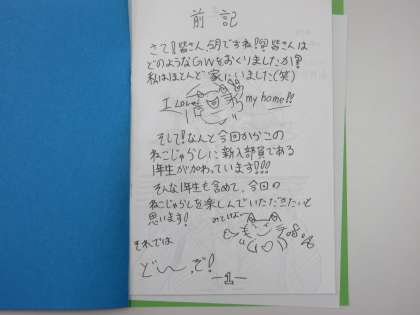 前記
さて!皆さん、5月ですね!?皆さんは
どのようなGWをおくりましたか!?
私はほとんど家にいました(笑)
I Love my home!!
そして!なんと今回からこの
ねこじゃらしに新入部員である
1年生が加わっています!!!
そんな1年生も含めて、今回の
ねこじゃらしを楽しんでいただきたいと
思います!
それでは
ど〜ぞ!
-1-